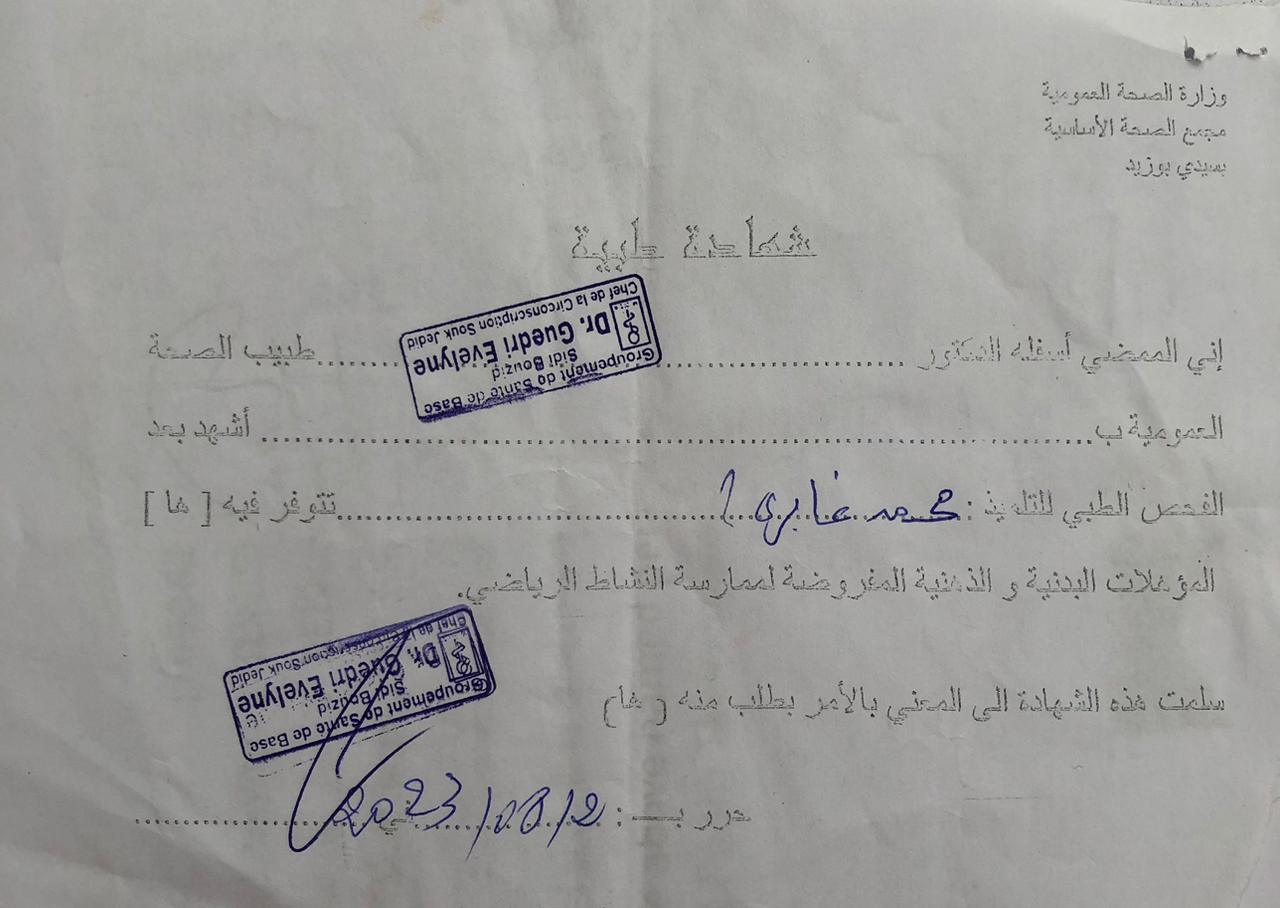 وزارة الصحة العمومية
مجمع الصحة الأساسية
بسيدي بوزيد
شهادة طبية
إني الممضي أسفله الدكتور ........................ طبيب الصحة
Groupement de Sante de Base
Sidi Bouzid
Dr. Guedri Evelyne
Chef de la Circonscription Souk Jedid
العمومية ب ........................ أشهد بعد
الفحص الطبي للتلميذ : محمد عابري ........................ تتوفر فيه [ ها ]
المؤهلات البدنية و الذهنية المفروضة لممارسة النشاط الرياضي.
سلمت هذه الشهادة الى المعني بالأمر بطلب منه ( ها)
Groupement de Sante de Base
Sidi Bouzid
Dr. Guedri Evelyne
Chef de la Circonscription Souk Jedid
حرر بـ : ............ في ............ 2023/08/2